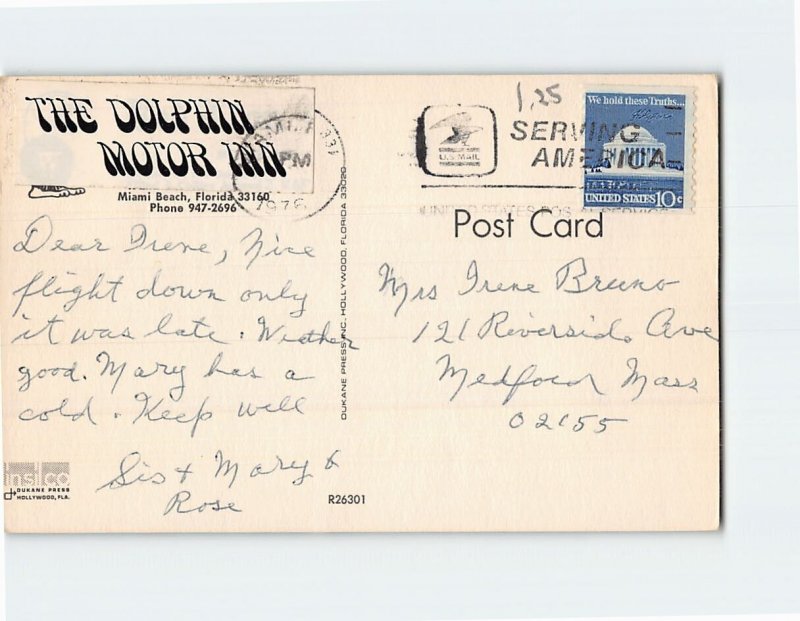 THE DOLPHIN
MOTOR INN
Miami Beach, Florida 33160
Phone 947-2696
PM
1976
1.25
U.S. MAIL
SERVING
AMERICA
We hold these Truths...
UNITED STATES 10c
Post Card
Dear Irene, Nice
flight down only
it was late. Weather
good. Mary has a
cold. Keep well
Sis + Mary &
Rose
Mrs Irene Bruno
121 Riverside Ave
Medford Mass
02155
DUKANE PRESS INC. HOLLYWOOD, FLORIDA 33020
DUKANE PRESS
HOLLYWOOD, FLA.
R26301